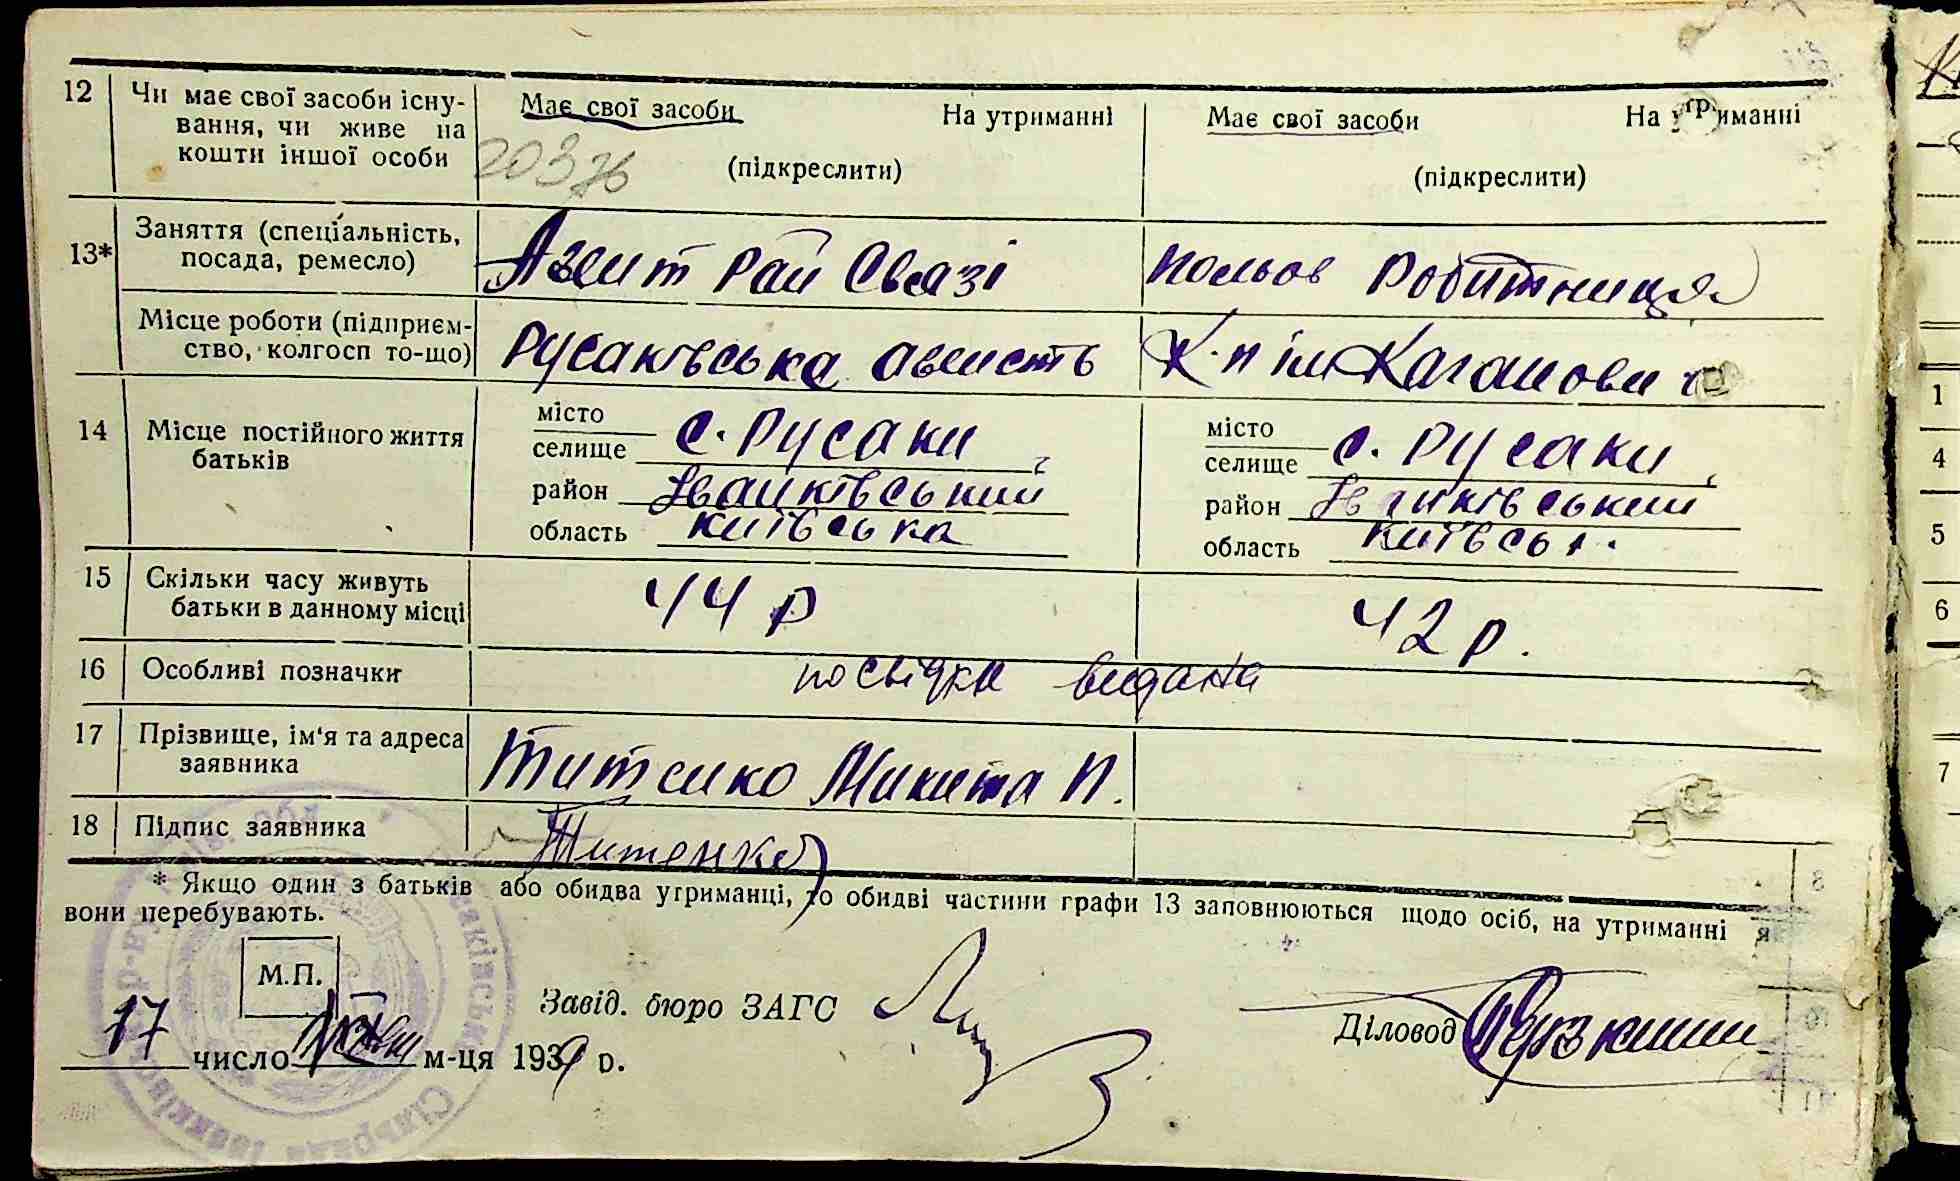 12 Чи має свої засоби існу- Має свої засоби На утриманні Має свої засоби На утриманні
вання, чи живе на
кошти іншої особи (підкреслити) (підкреслити)
20376
Заняття (спеціальність,
13* посада, ремесло) Агент Рай Связі польов Робитниця
Місце роботи (підприєм-
ство, колгосп то-що) Русаківська К-п ім Кагановича
14 Місце постійного життя батьків
місто
селище с. Русаки
район Іванківський
область київська
місто
селище с. Русаки
район Іванківський
область київськ.
15 Скільки часу живуть
батьки в данному місці 44 р 42 р.
16 Особливі позначки посвідка видана
17 Прізвище, ім'я та адреса
заявника Титенко Микита П.
18 Підпис заявника Титенко
* Якщо один з батьків або обидва утриманці, то обидві частини графи 13 заповнюються щодо осіб, на утриманні я
вони перебувають.
М.П.
Завід. бюро ЗАГС
Діловод
17 число м-ця 1939 р.
Сільрада
1
4
5
6
7